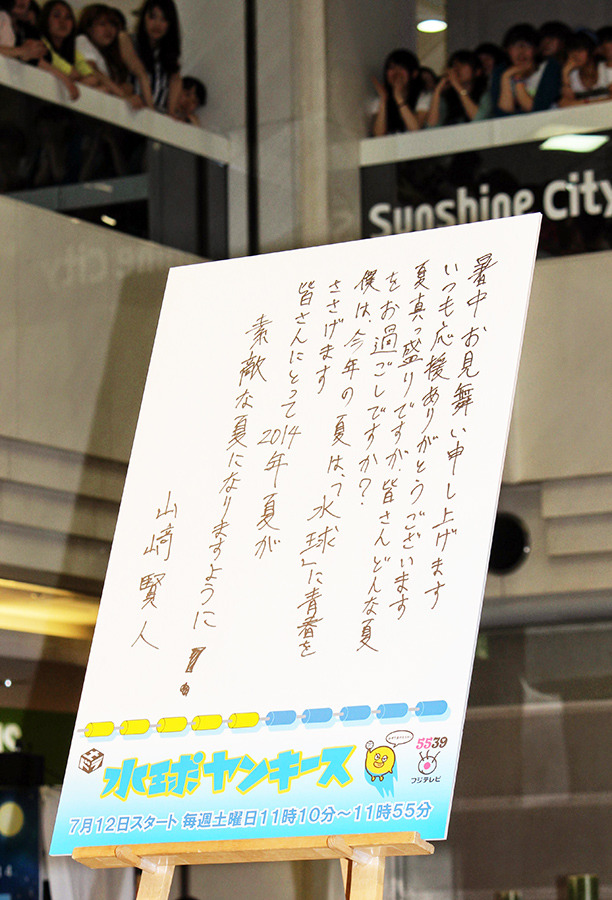 Sunshine City
暑中お見舞い申し上げます
いつも応援ありがとうございます
夏真っ盛りですが、皆さんどんな夏
をお過ごしですか?
僕は、今年の夏は、「水球」に青春を
ささげます
皆さんにとって2014年夏が
素敵な夏になりますように!
山﨑賢人
水球ヤンキース
5539
フジテレビ
7月12日スタート 毎週土曜日11時10分〜11時55分